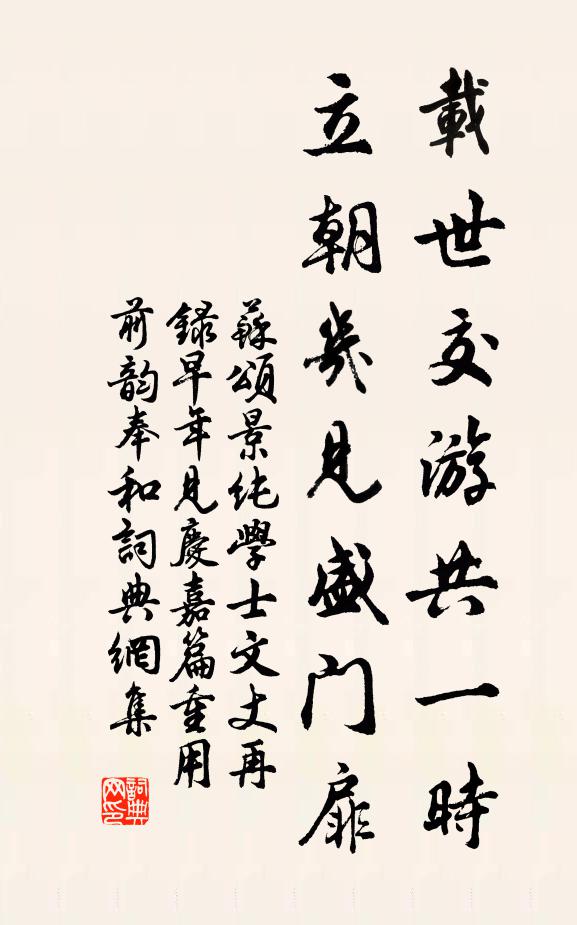 載世交游共一時
立朝幾見盛门扉
蘇頌景純學士文丈再
録早年見慶嘉篇重用
前韵奉和詞典網集
詞典
网印